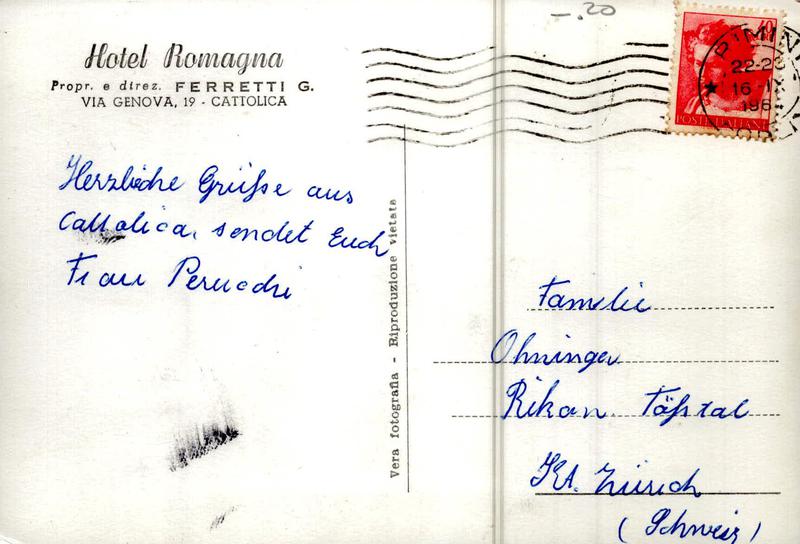 -.20
Hotel Romagna
Propr. e direz. FERRETTI G.
VIA GENOVA, 19 - CATTOLICA
40
RIMINI
22-23
16 IX
POSTE ITALIANE
Herzliche Grüße aus
Cattolica, sendet Euch
Frau
Vera fotografia - Riproduzione vietata
Familie
Ohninger
Rikon Tößtal
Kt. Zürich
(Schweiz)